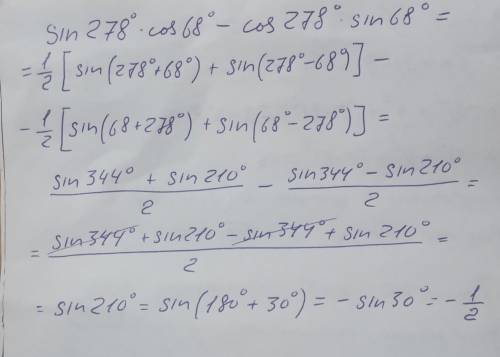 sin278°·cos68° - cos278°·sin68° =
= 1/2 [sin(278°+68°) + sin(278°-68°)] -
- 1/2 [sin(68+278°) + sin(68°-278°)] =
(sin344° + sin210°)/2 - (sin344° - sin210°)/2 =
= (sin344° + sin210° - sin344° + sin210°)/2 =
= sin210° = sin(180°+30°) = - sin30° = - 1/2